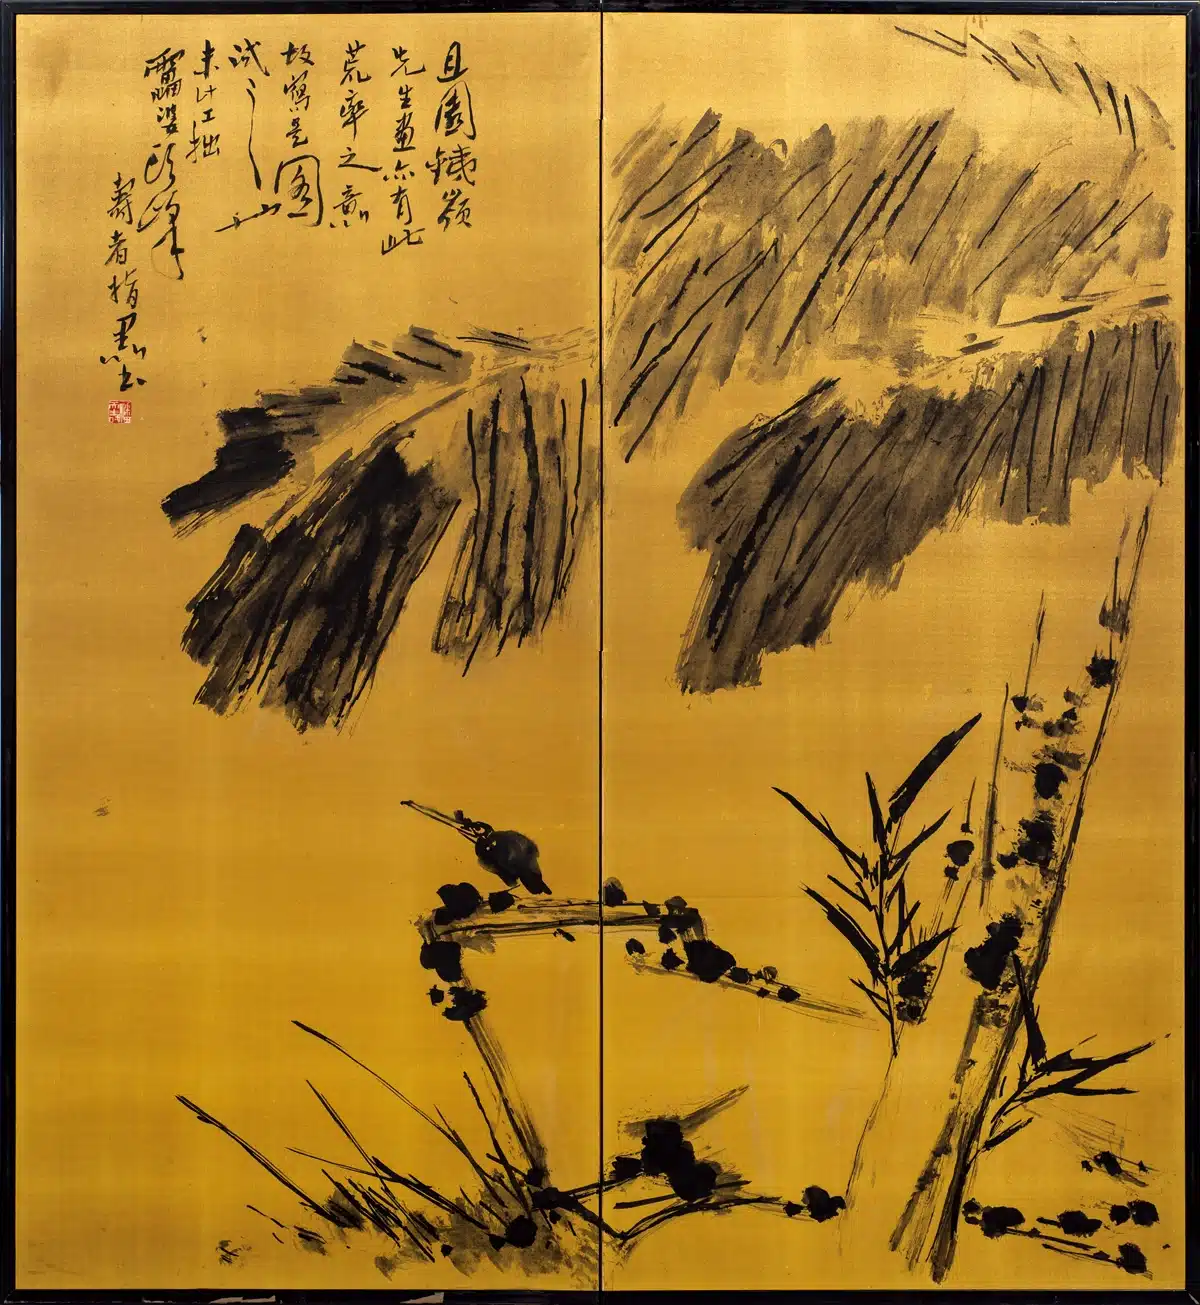 且園鐵嶺
先生畫亦有此
荒率之意
故寫是圖
試之
未計工拙
靁婆頭峰
壽者指墨